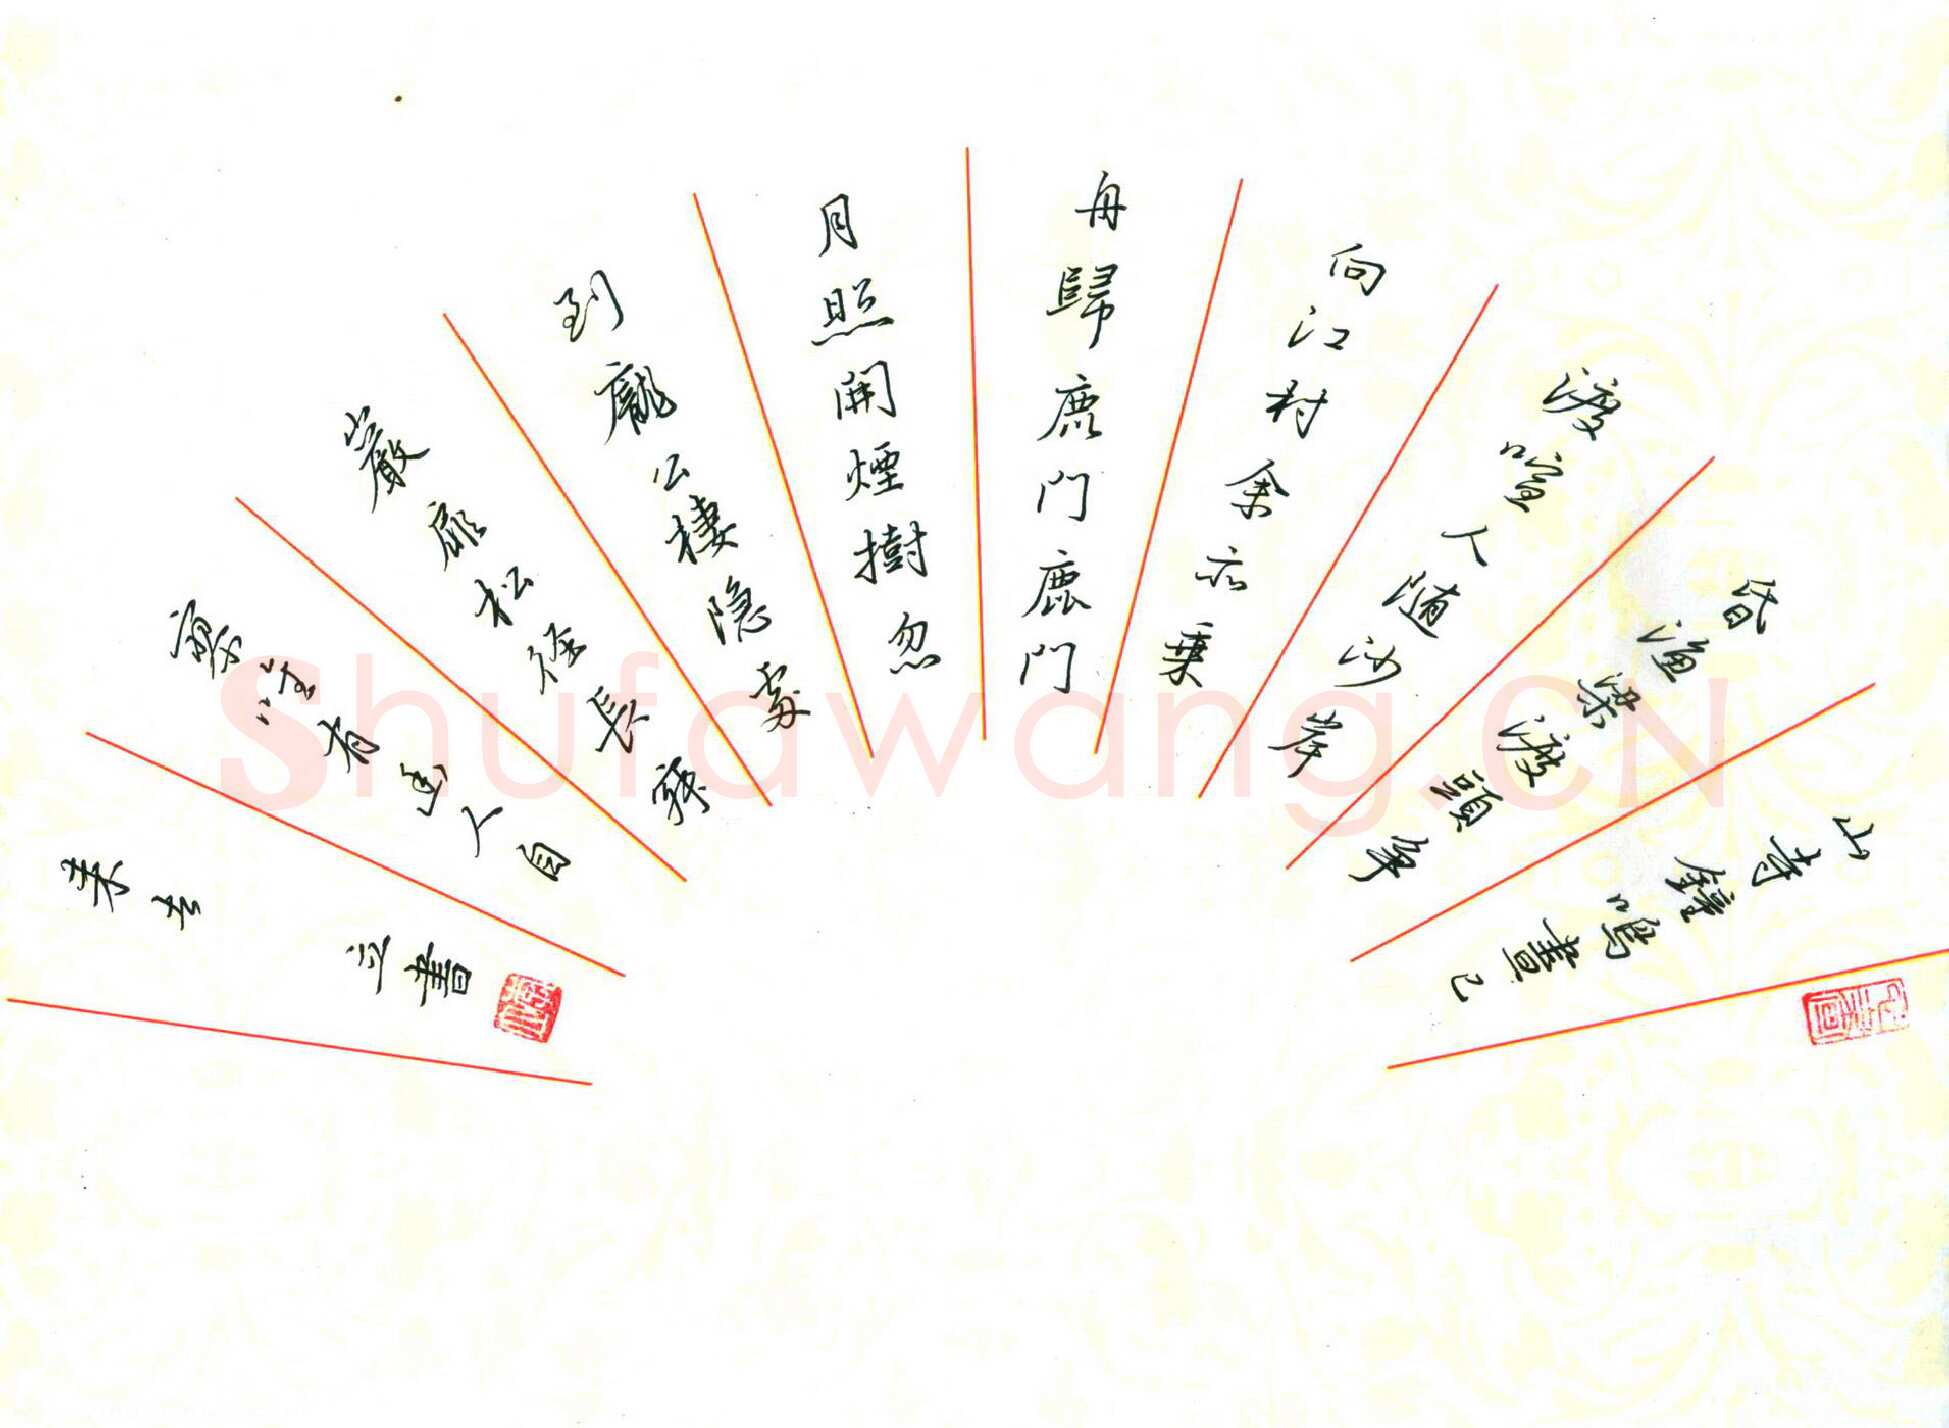 山寺鐘鳴晝已
昏渔梁渡頭争
渡喧人随沙岸
向江村余亦乗
舟歸鹿门鹿门
月照開煙樹忽
到龐公棲隐處
巖扉松徑長寂
寥惟有幽人自
来去 立書
Shufawang.CN